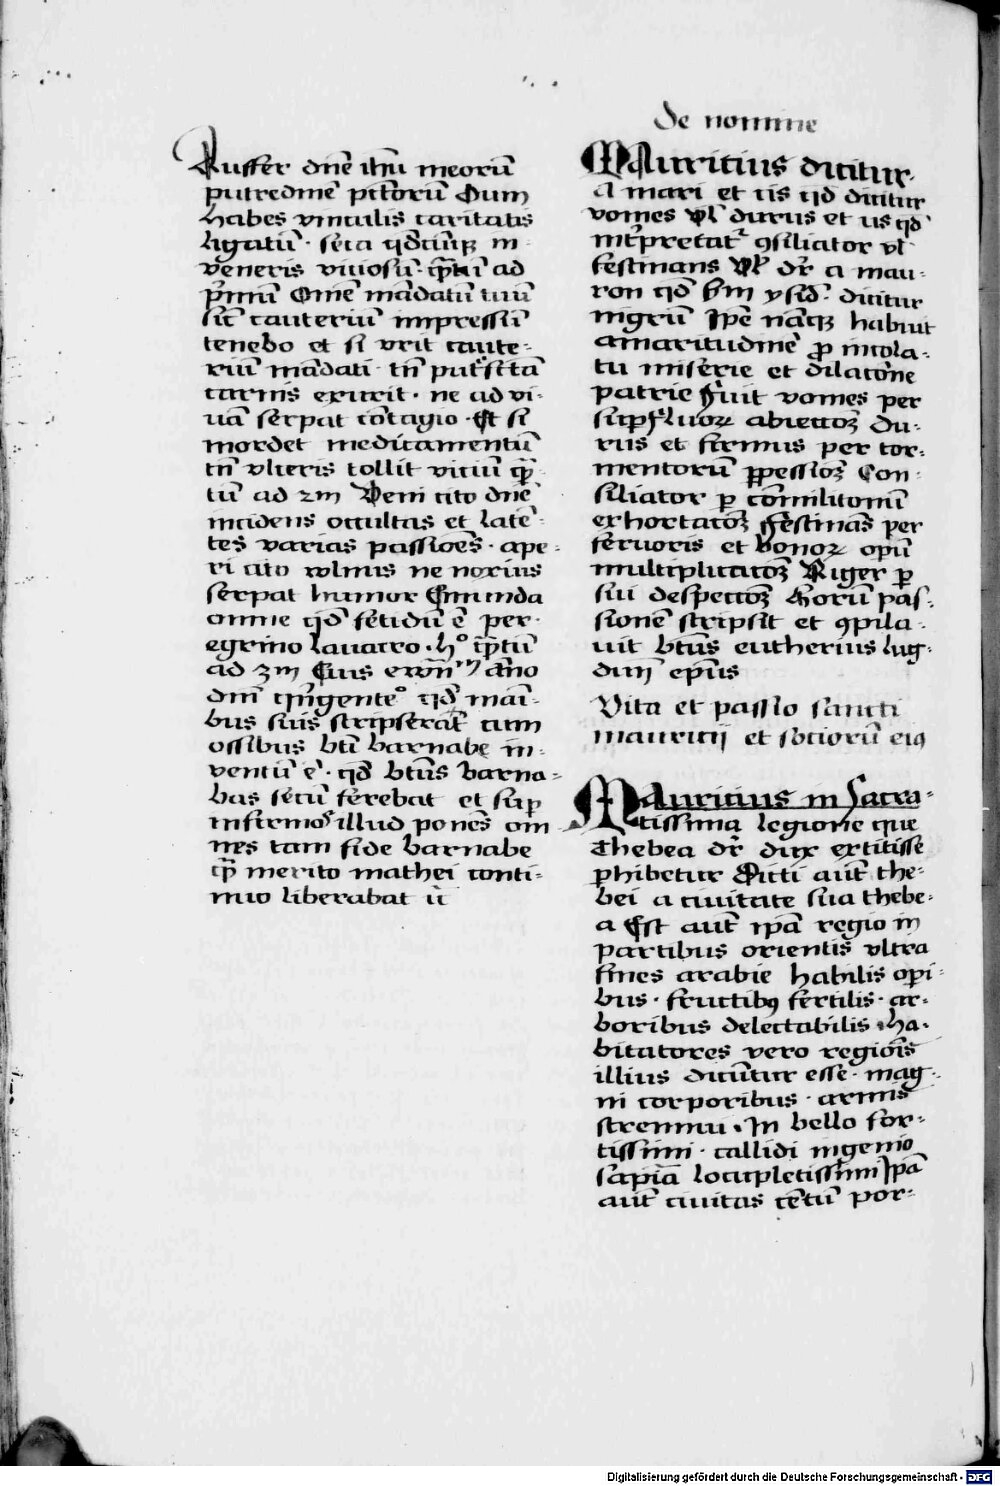 Auffer dn̄e ih̄u meorū
putredinē pct̄orū Oum
habes vinculis caritatis
ligatū · seca qd̄cūq; in-
veneris viciosū · qn̄tū ad
pͥmū Omē mādatū tuū
sic̄ cauteriū impressū
tenebo et si vrit caute-
riū mādati · tn̄ putscētā
carnis exurit · ne ad vi-
uā serpat cōtagio · Et si
mordet medicamentū
tn̄ vlceris tollit viciū qn̄-
tū ad 2m Veni cito dn̄e
incidens occultas et latē-
tes varias passiōes · ape-
ri cito vlnus ne noxius
serpat humor Emunda
omne qd̄ fetidū ē per-
egrino lavacro · hͦ qn̄tū
ad 3m Cuius ewn̄ āno
dnī qn̄genteͦ qd̄ mani-
bus suis scripserat̄ cum
ossibus bt̄i barnabe in-
ventū ē · qd̄ bt̄us barna-
bas secū ferebat et sup
infirmos illud ponēs om-
nes tam fide barnabe
qm̄ merito mathei conti-
nuo liberabat
de nomine
Mauritius dicitur
a mari et cis qd̄ dicitur
vomes vl̄ durus et us qd̄
int̄pretat̄ ꝯsiliator vl̄
festinans Vl̄ dr̄ a mau-
ron qd̄ sm̄ ysid̄ · dicitur
nigrū Ipē nāq; habuit
amaritudinē ꝓ incola-
tu miserie et dilacōne
patrie fuit vomes per
supfluor abiectōꝫ du-
rus et firmus per tor-
mentorū ppessiōꝫ Con-
siliator p cōmilitonū
exhortatōꝫ festinās per
fervoris et bonoꝝ opū
multiplicatōꝫ Niger p
sui despectōꝫ horū pas-
sionē scripsit et ꝯpila-
uit bt̄us eutherius lug-
duñ ep̄us
Vita et passio sancti
mauritij et sociorū eiꝰ
Mauritius in sacra-
tissima legione que
Thebea dr̄ dux extitisse
phibetur Dicti aut̄ the-
bei a civitate sua thebe-
a Est aut̄ ip̄a regio in
partibus orientis vltra
fines arabie habilis opi-
bus · fructibꝰ fertilis · ar-
boribus delectabilis · ha-
bitatores vero regiōis
illius dicūtur esse · mag-
ni corporibus · armis
strennui · In bello for-
tissimi · callidi ingenio
sapīa locupletissimi Ip̄a
aut̄ civitas cētū por-
Digitalisierung gefördert durch die Deutsche Forschungsgemeinschaft - DFG